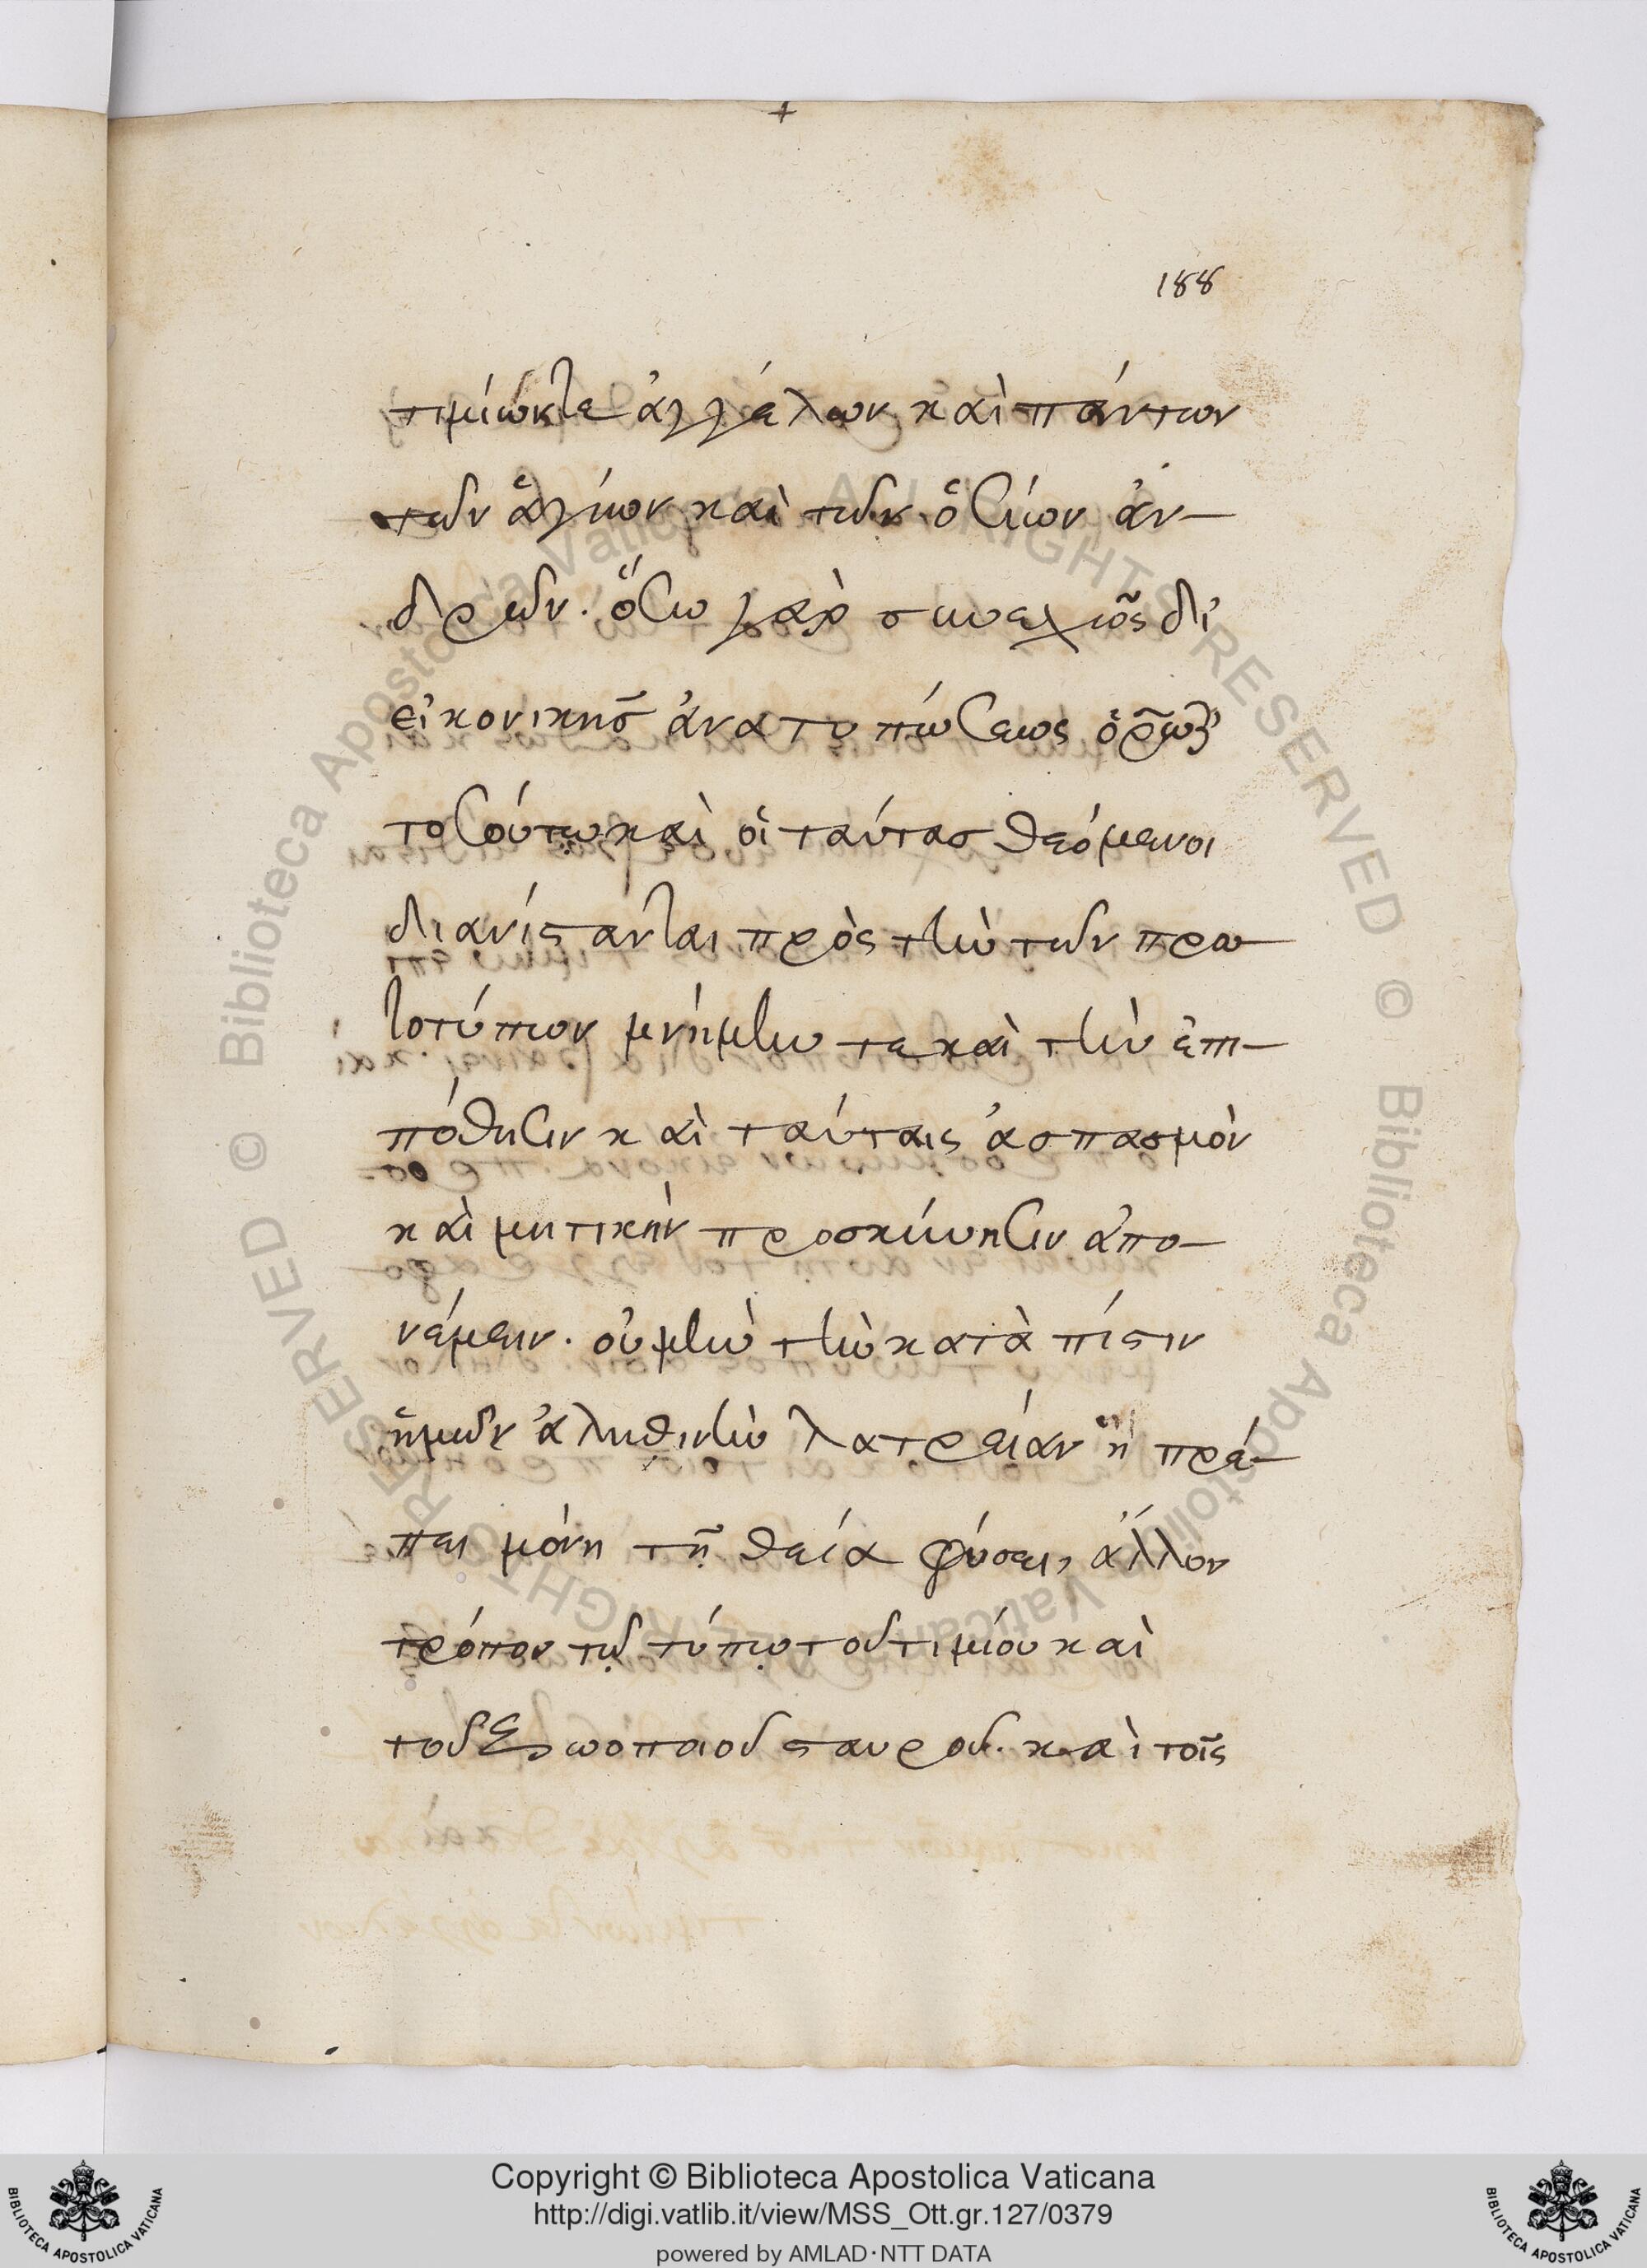 188
τιμίων τε ἀγγέλων καὶ πάντων
τῶν ἁγίων καὶ τῶν ὁσίων ἀν-
δρῶν. ὅσω γὰρ συνεχῶς δι'
εἰκονικῆς ἀνατυπώσεως ὁρῶν
το σούτω καὶ οἱ ταύτας θεόμενοι
διανίστανται πρὸς τὴν τῶν πρω
τοτύπων μνήμην τε καὶ τὴν ἐπι-
πόθησιν καὶ ταύταις ἀσπασμὸν
καὶ μητικὴν προσκύνησιν ἀπο-
νέμειν. οὐ μὴν τὴν κατὰ πίστιν
ἡμῶν ἀληθινὴν λατρείαν ἣ πρέ-
πει μόνη τῆ θεία φύσει, ἄλλον
τρόπον τῷ τύπῳ τοῦ τιμίου καὶ
τοῦ ζωοποιοῦ σταυροῦ. καὶ τοῖς
Copyright © Biblioteca Apostolica Vaticana
http://digi.vatlib.it/view/MSS_Ott.gr.127/0379
powered by AMLAD·NTT DATA